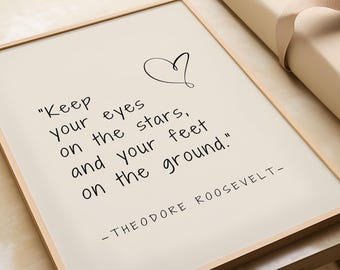 "Keep
your eyes
on the stars,
and your feet
on the ground."
–THEODORE ROOSEVELT–